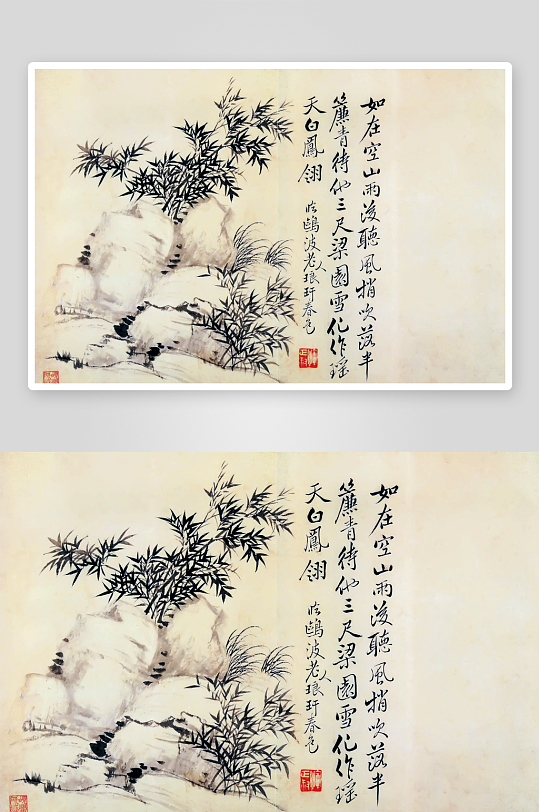 如在空山雨後聽風捎吹落半
簾青待他三尺梁園雪化作瑶
天白鳳翎
临鷗波老人琅玕春色
如在空山雨後聽風捎吹落半
簾青待他三尺梁園雪化作瑶
天白鳳翎
临鷗波老人琅玕春色